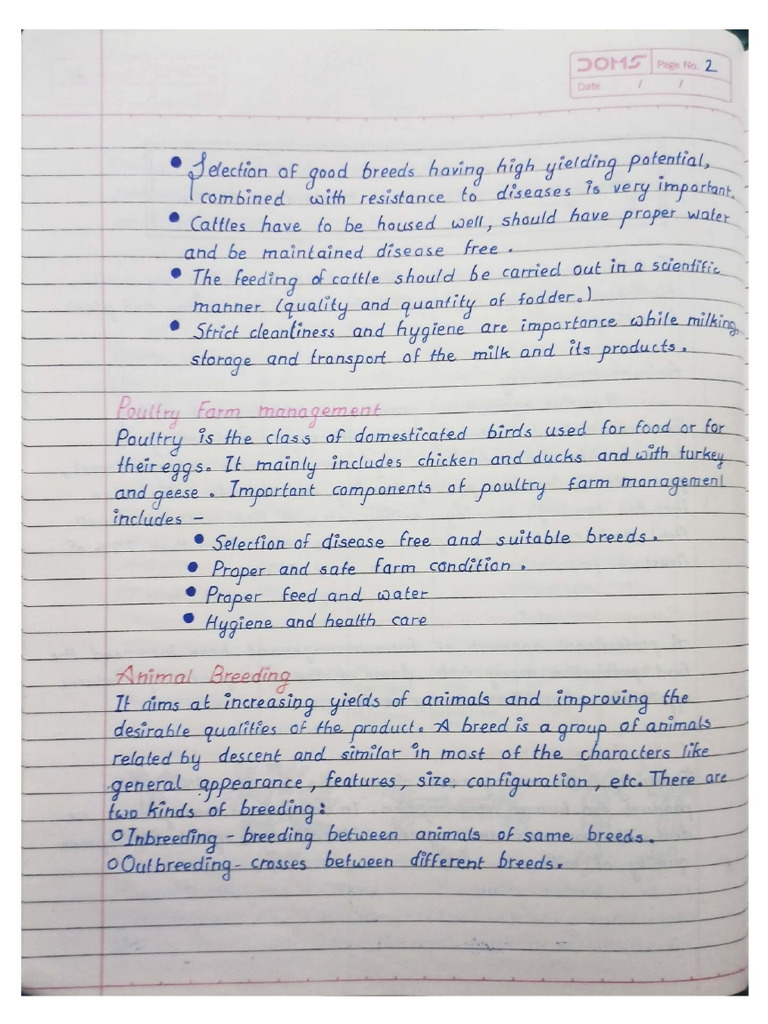 DOMS Page No. 2
Date / /
• Selection of good breeds having high yielding potential,
combined with resistance to diseases is very important.
• Cattles have to be housed well, should have proper water
and be maintained disease free.
• The feeding of cattle should be carried out in a scientific
manner (quality and quantity of fodder.)
• Strict cleanliness and hygiene are importance while milking,
storage and transport of the milk and its products.
Poultry Farm management
Poultry is the class of domesticated birds used for food or for
their eggs. It mainly includes chicken and ducks and with turkey
and geese. Important components of poultry farm management
includes -
• Selection of disease free and suitable breeds.
• Proper and safe farm condition.
• Proper feed and water
• Hygiene and health care
Animal Breeding
It aims at increasing yields of animals and improving the
desirable qualities of the product. A breed is a group of animals
related by descent and similar in most of the characters like
general appearance, features, size, configuration, etc. There are
two kinds of breeding:
○ Inbreeding - breeding between animals of same breeds.
○ Outbreeding - crosses between different breeds.